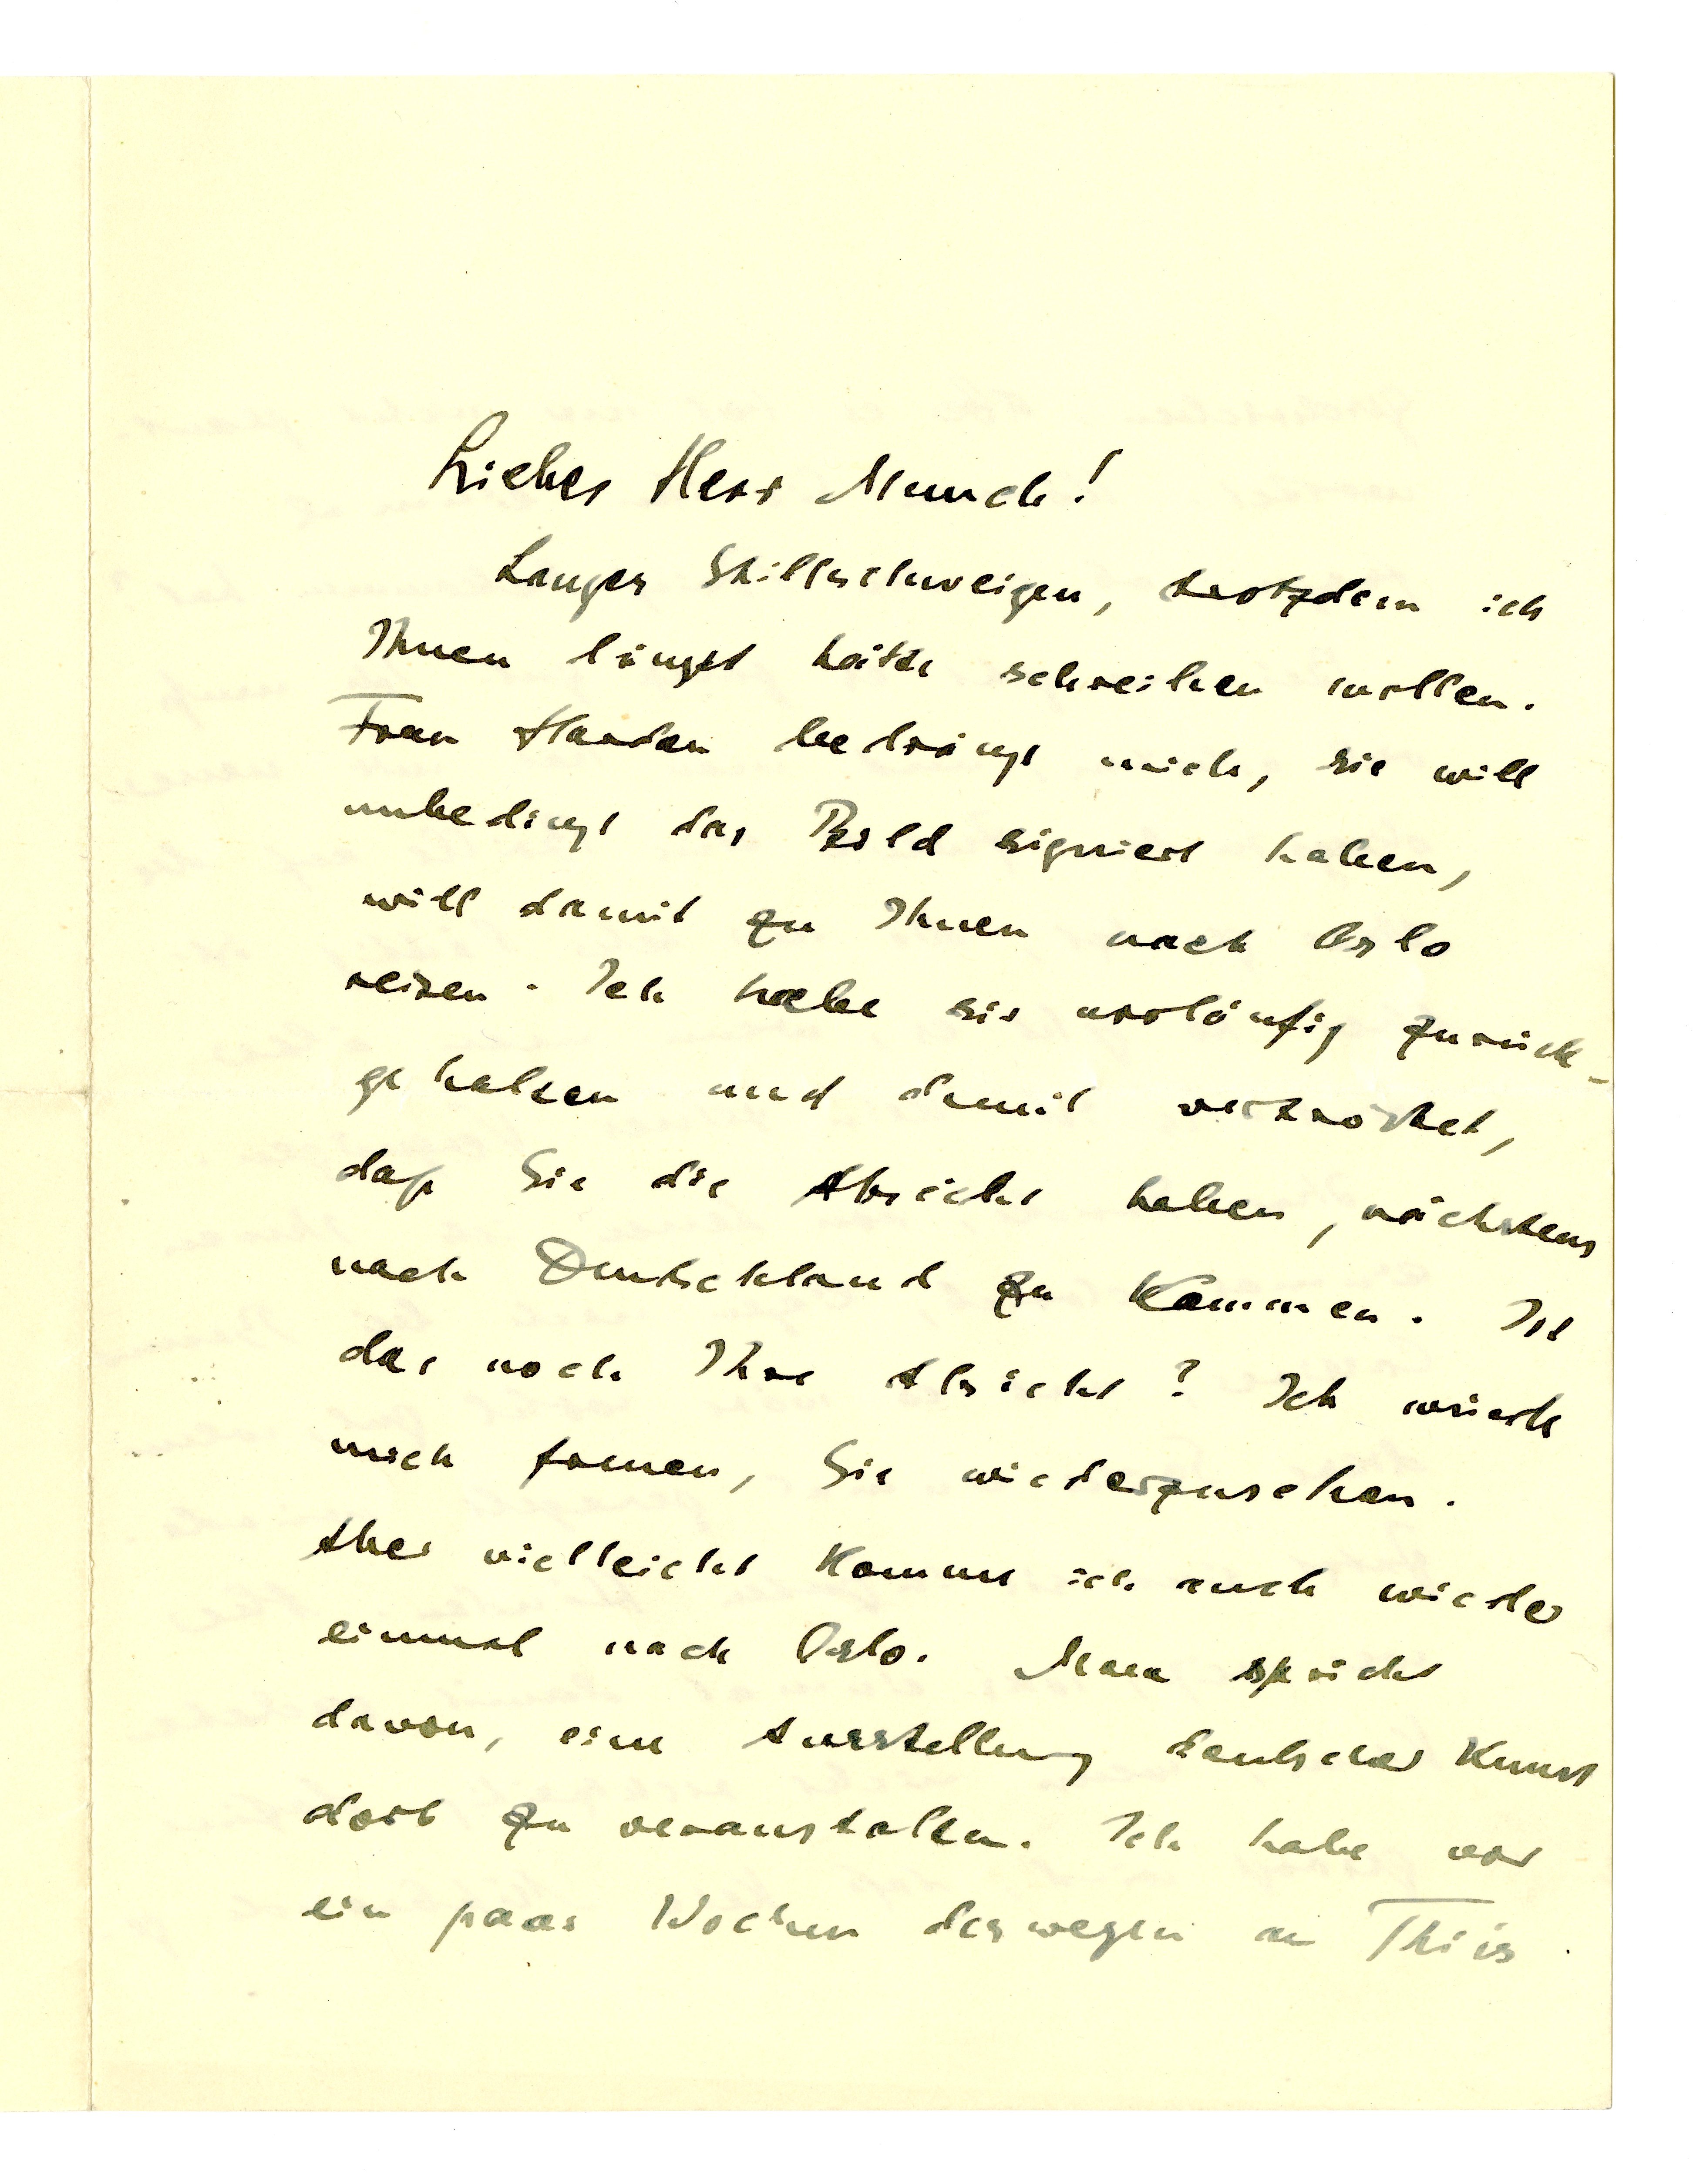 Lieber Herr Munch!
Langes Stillschweigen, trotzdem ich
Ihnen längst hätte schreiben wollen.
Frau Harden bedrängt mich, sie will
unbedingt das Bild signiert haben,
will damit zu Ihnen nach Oslo
reisen. Ich habe sie vorläufig zurück-
gehalten und damit vertröstet,
daß Sie die Absicht haben, nächstens
nach Deutschland zu Kommen. Ist
das noch Ihre Absicht? Ich würde
mich freuen, Sie wiederzusehen.
Aber vielleicht Komme ich auch wieder
einmal nach Oslo. Man spricht
davon, eine Ausstellung deutscher Kunst
dort zu veranstalten. Ich habe vor
ein paar Wochen deswegen an Thiis